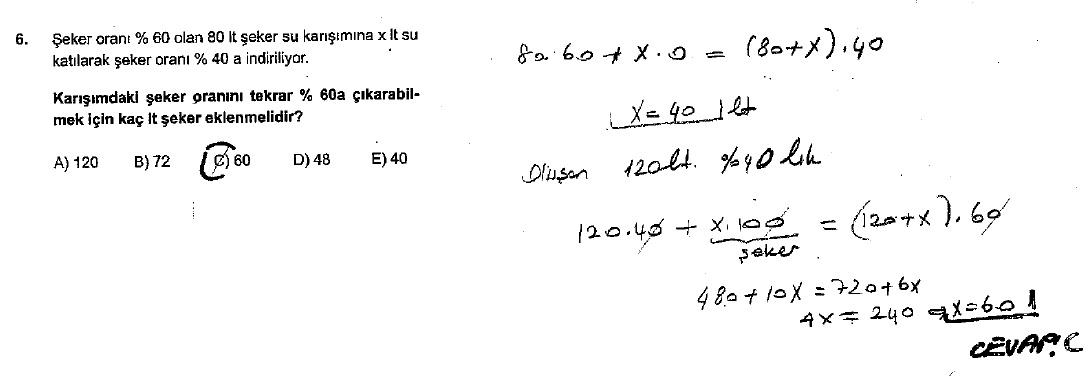 6. Şeker oranı % 60 olan 80 lt şeker su karışımına x lt su
katılarak şeker oranı % 40 a indiriliyor.
Karışımdaki şeker oranını tekrar % 60a çıkarabil-
mek için kaç lt şeker eklenmelidir?
A) 120 B) 72 C) 60 D) 48 E) 40
80.60 + x.0 = (80+x).40
x = 40 lt
Oluşan 120lt. %40 lık
120.40 + x.100 = (120+x).60
şeker
480 + 10x = 720 + 6x
4x = 240 ⇒ x = 60 l
CEVAP: C